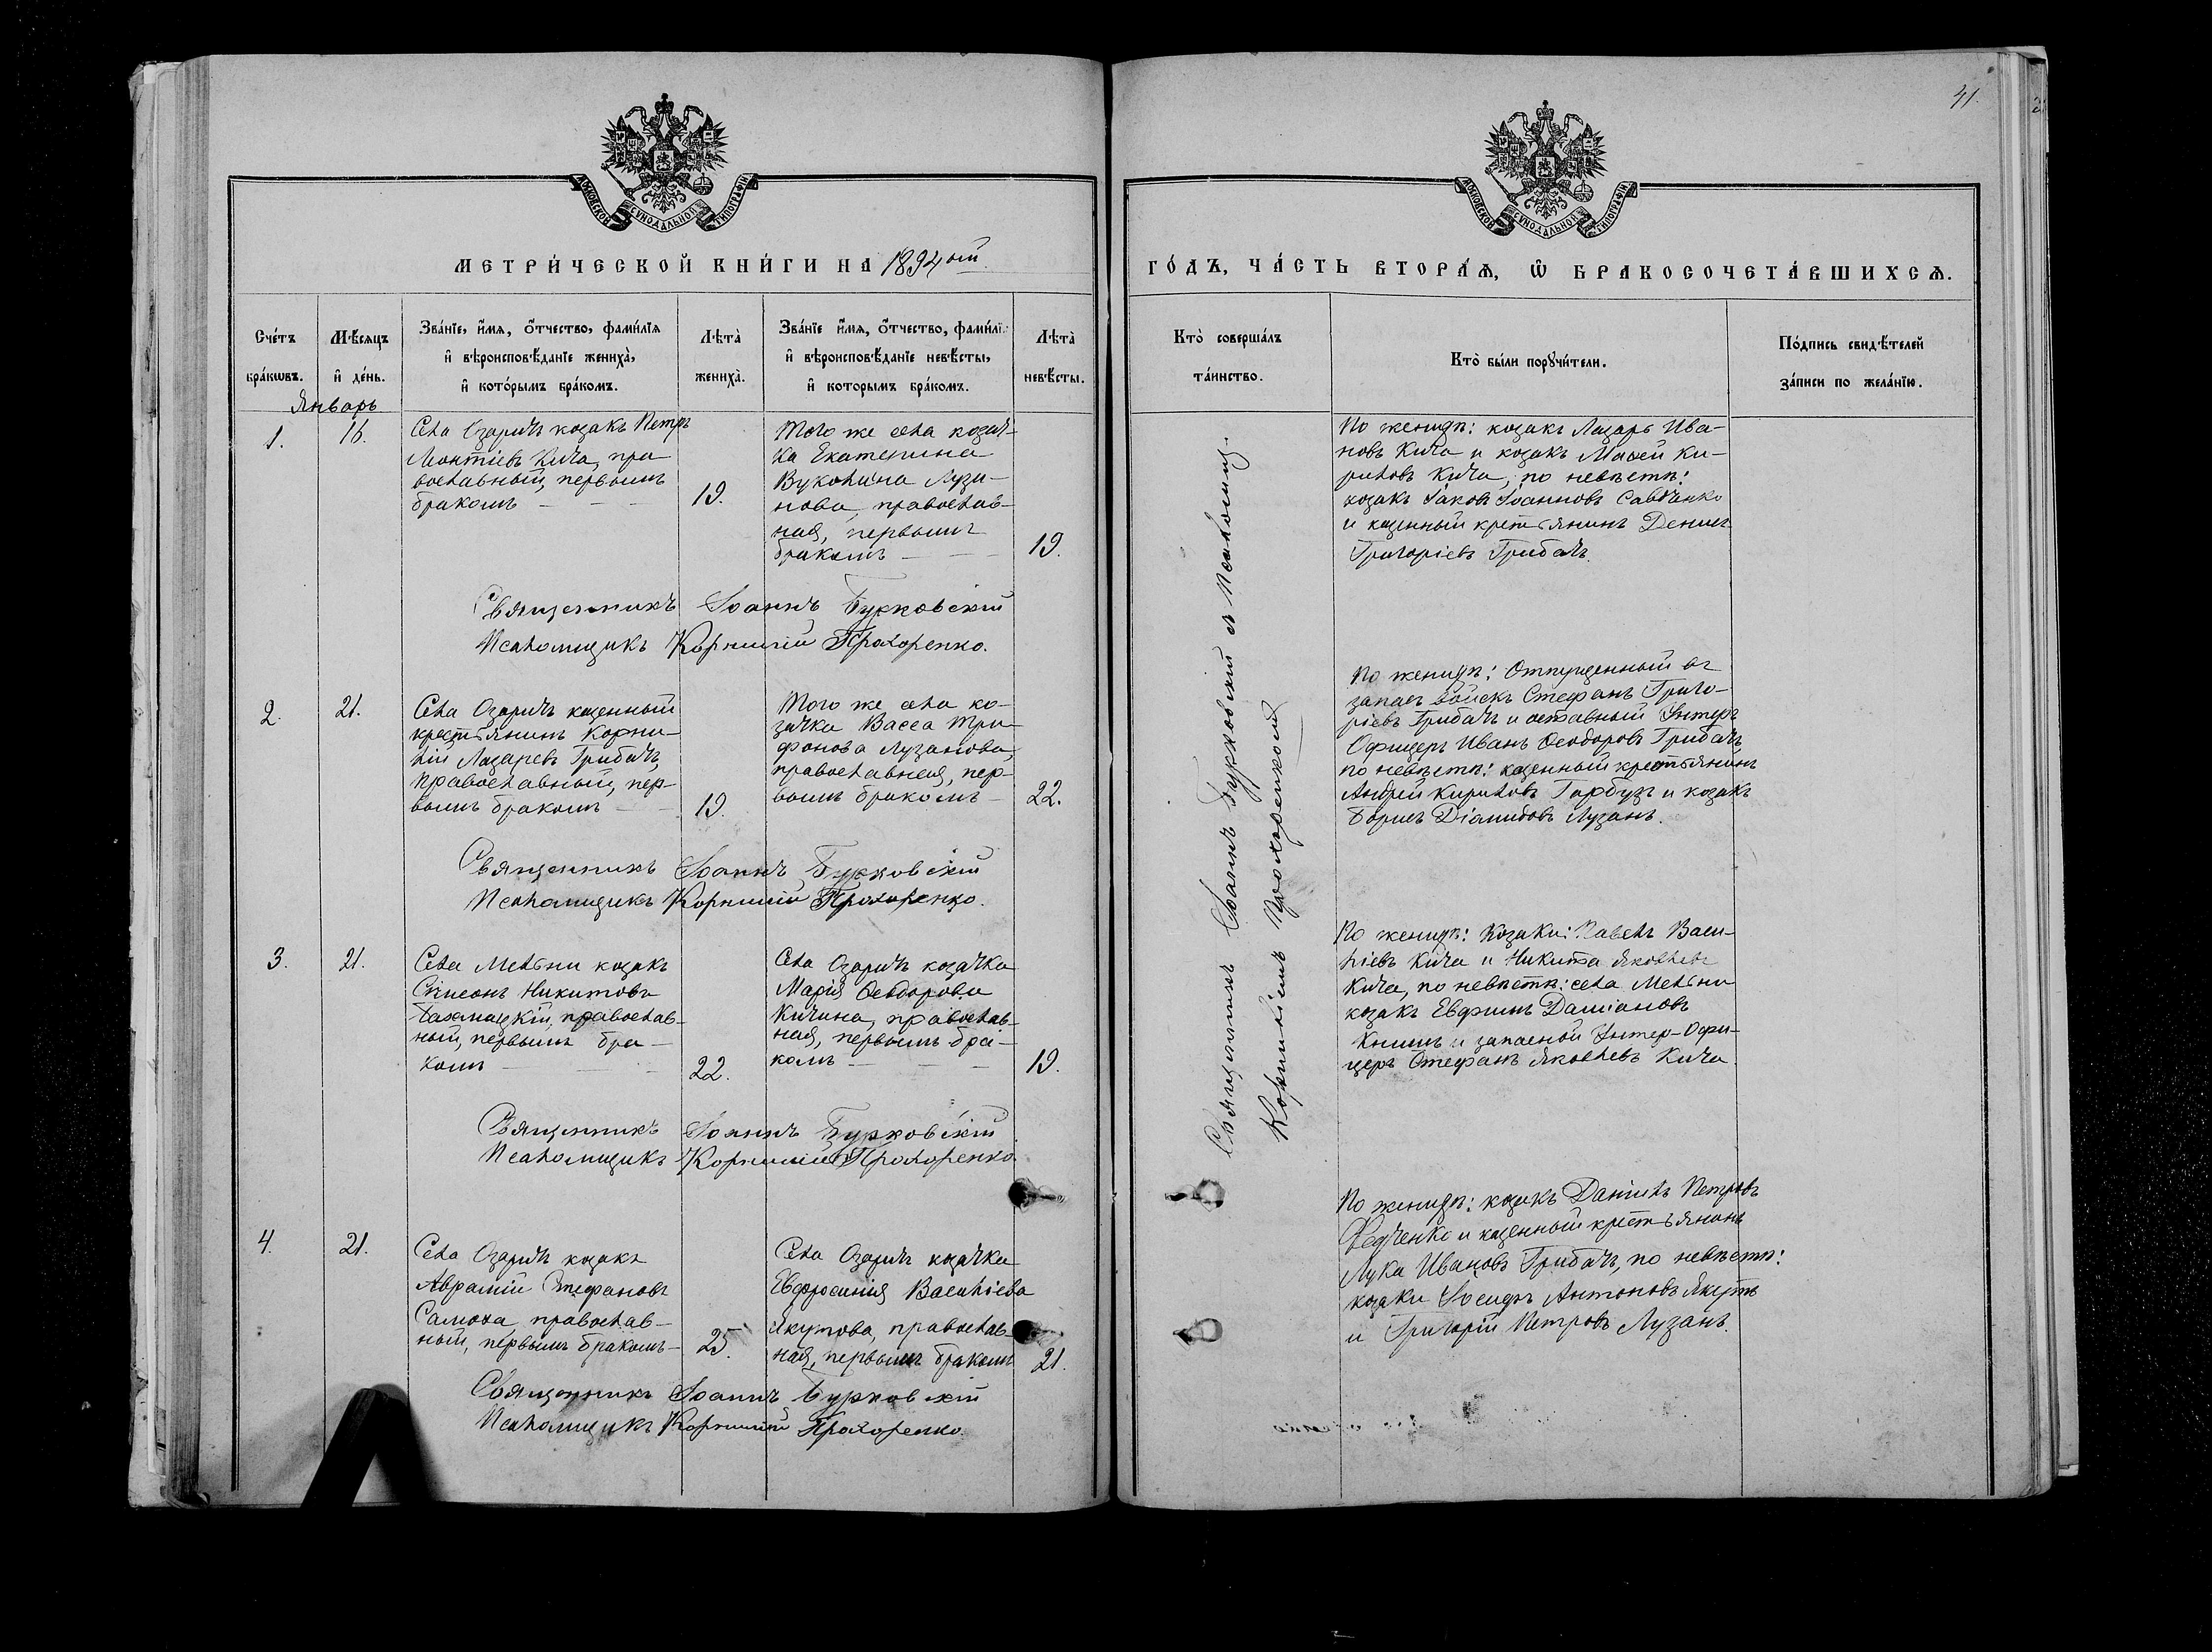 41.
МОСКОВСКОЙ СѴНОДАЛЬНОЙ ТИПОГРАФІИ
МОСКОВСКОЙ СѴНОДАЛЬНОЙ ТИПОГРАФІИ
МЕТРИ́ЧЕСКОЙ КНИ́ГИ НА 1894 ой
ГО́ДЪ, ЧА́СТЬ ВТОРА́Ѧ, Ѽ БРАКОСОЧЕТА́ВШИХСѦ.
Сче́тъ
бра́кѡвъ.
Мѣ́сѧцъ
и҆ де́нь.
Зва́нїе, и҆́мѧ, ѻ҆́тчество, фами́лїѧ
и҆ вѣроисповѣ́данїе жениха̀,
и҆ кото́рымъ бра́комъ.
Лѣта̀
жениха̀.
Зва́нїе и҆́мѧ, ѻ҆́тчество, фами́лї
и҆ вѣроисповѣ́данїе невѣ́сты,
и҆ которымъ бра́комъ.
Лѣта̀
невѣ́сты.
Кто̀ соверша́лъ
та́инство.
Кто̀ бы́ли порꙋчи́тели.
По́дпись свидѣ́телей
за́писи по жела́нїю.
Январь
1.
16.
Села Озаричъ козакъ Петръ
Леонтіевъ Кича, пра
вославный, первымъ
бракомъ – – –
19.
Того же села козач-
ка Екатерина
Вуколина Лузи-
нова, православ-
ная, первымъ
бракомъ – –
19.
По женихѣ: козакъ Лазарь Ива-
новъ Кича и козакъ Мосей Ки-
риловъ Кича, по невѣстѣ:
козакъ Іаковъ Іоанновъ Савченко
и казенный крестьянинъ Денисъ
Григоріевъ Грибачъ.
Священникъ Іоаннъ Бурковскій
Псаломщикъ Корнилій Прохоренко.
2.
21.
Села Озаричъ казенный
крестьянинъ Корни-
лій Лазаревъ Грибачъ,
православный, пер-
вымъ бракомъ –
19.
Того же села ко-
зачка Васса Три-
фонова Лузанова,
православная, пер-
вымъ бракомъ –
22.
По женихѣ: Отпущенный въ
запасъ войскъ Стефанъ Григо-
ріевъ Грибачъ и отставный Унтеръ
Офицеръ Иванъ Ѳеодоровъ Грибачъ,
по невѣстѣ: казенный крестьянинъ
Андрей Кириловъ Гарбузъ и козакъ
Борисъ Діамидовъ Лузанъ.
Священникъ Іоаннъ Бурковскій
Псаломщикъ Корнилій Прохоренко.
3.
21.
Села Мельни козакъ
Симеонъ Никитовъ
Бахмацкій, православ-
ный, первымъ бра-
комъ – –
22.
Села Озаричъ козачка
Марія Ѳеодорова
Кичина, православ-
ная, первымъ бра-
комъ – – –
19.
По женихѣ: Козаки: Павелъ Васи-
ліевъ Кича и Никита Яковлевъ
Кича, по невѣстѣ: села Мельни
козакъ Евфимъ Даміановъ
Книшъ и запасной Унтер-Офи-
церъ Стефанъ Яковлевъ Кича.
Священникъ Іоаннъ Бурковскій
Псаломщикъ Корнилій Прохоренко.
4.
21.
Села Озаричъ козакъ
Аврамій Стефановъ
Самоха, православ-
ный, первымъ бракомъ –
25.
Села Озаричъ козачка
Евфросинія Василіева
Якутова, православ-
ная, первымъ бракомъ
21.
По женихѣ: козакъ Даніилъ Петровъ
Федченко и казенный крестьянинъ
Лука Ивановъ Грибачъ, по невѣстѣ:
козаки Іосифъ Антоновъ Якутъ
и Григорій Петровъ Лузанъ.
Священникъ Іоаннъ Бурковскій
Псаломщикъ Корнилій Прохоренко.
Священникъ Іоаннъ Бурковскій и Псаломщ.
Корниліемъ Прохоренкомъ